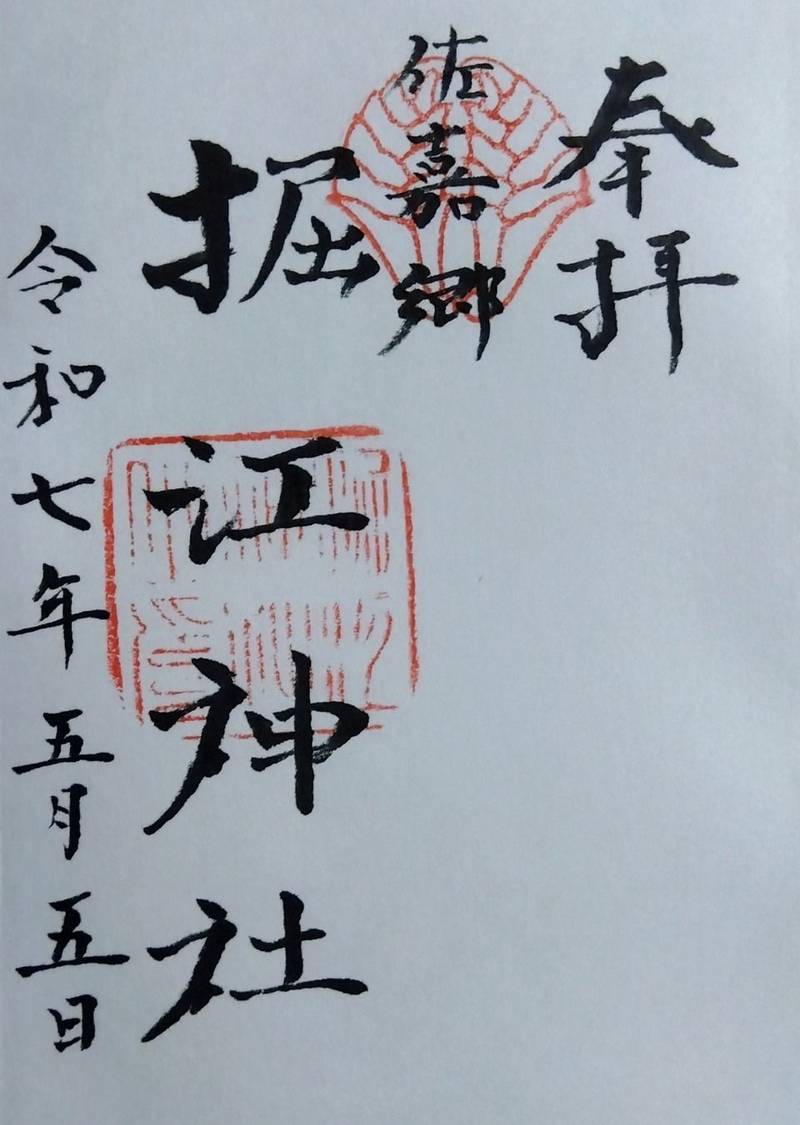 奉拝
佐嘉郷
掘江神社
令和七年五月五日